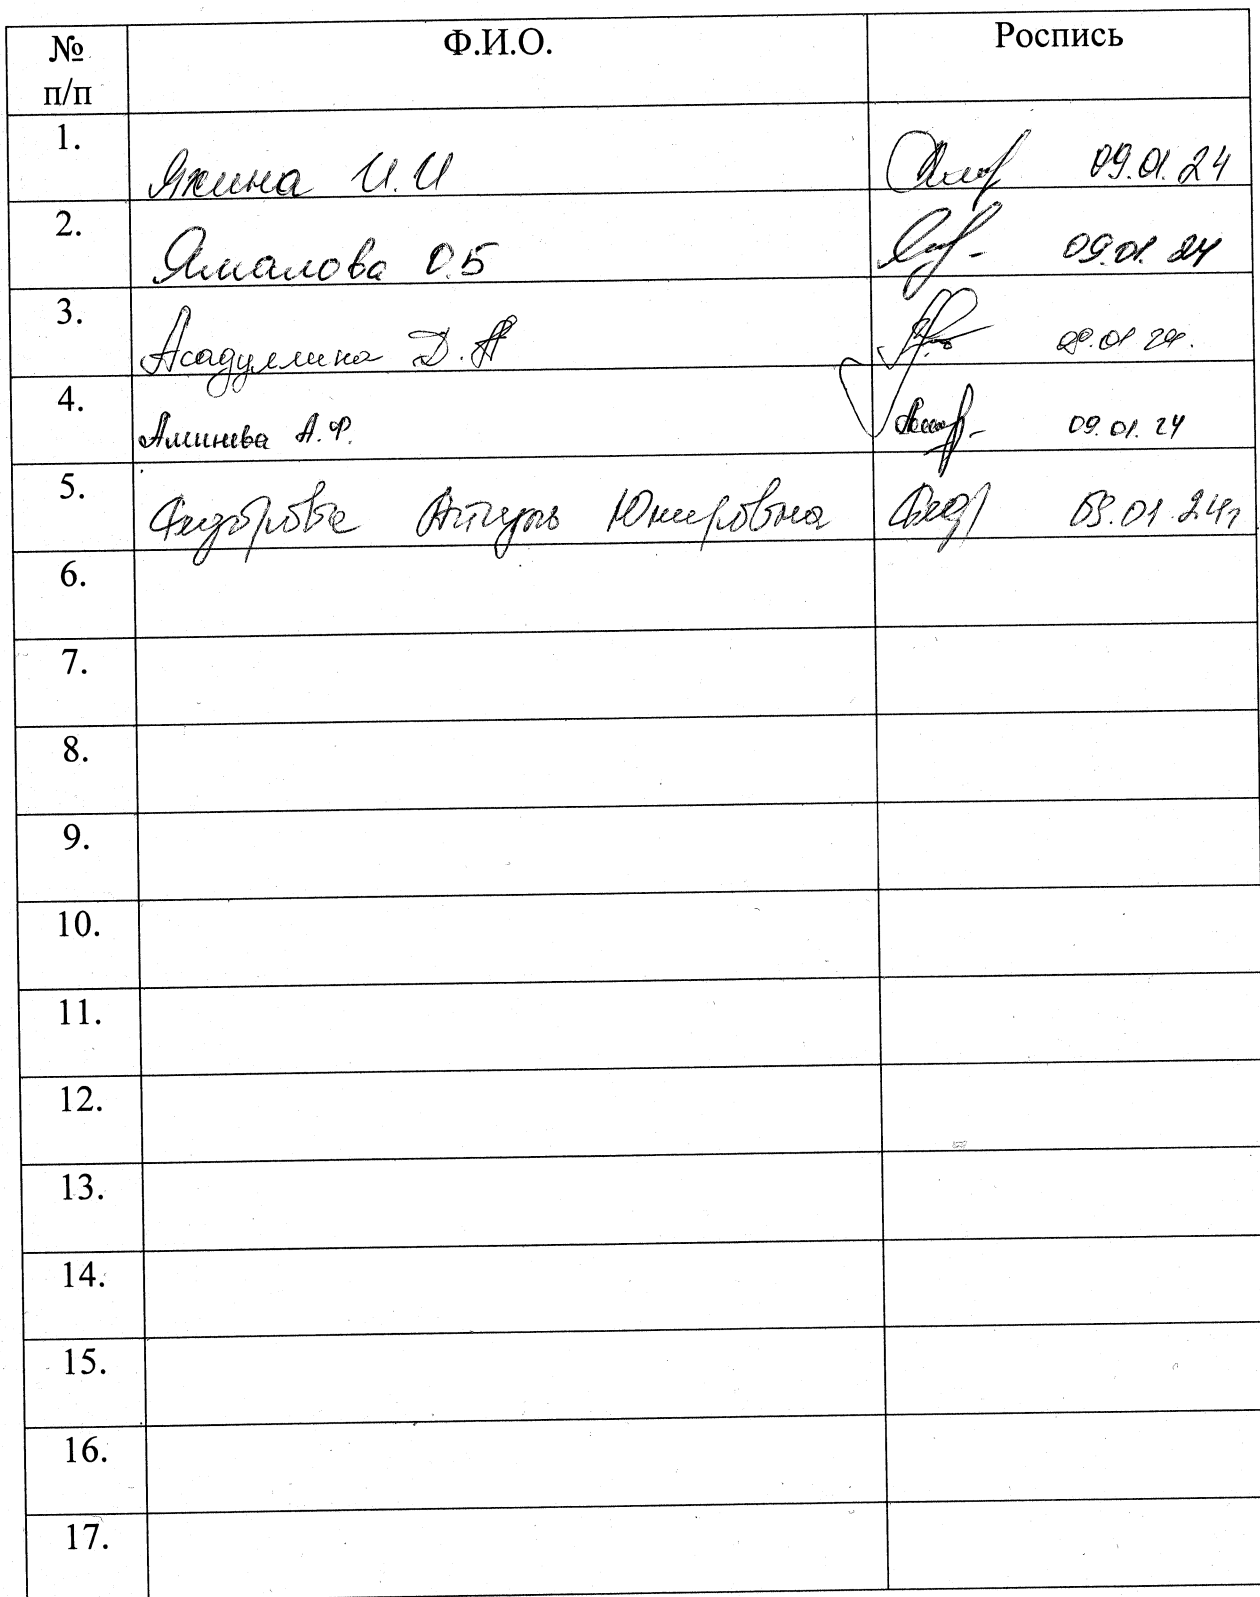 № п/п Ф.И.О. Роспись
1. Яхина И.И 09.01.24
2. Ямалова О.Б 09.01.24
3. Асадуллина Д.А 09.01.24.
4. Аминева А.Ф. 09.01.24
5. Федорова Айгуль Юнировна 09.01.24г
6.
7.
8.
9.
10.
11.
12.
13.
14.
15.
16.
17.